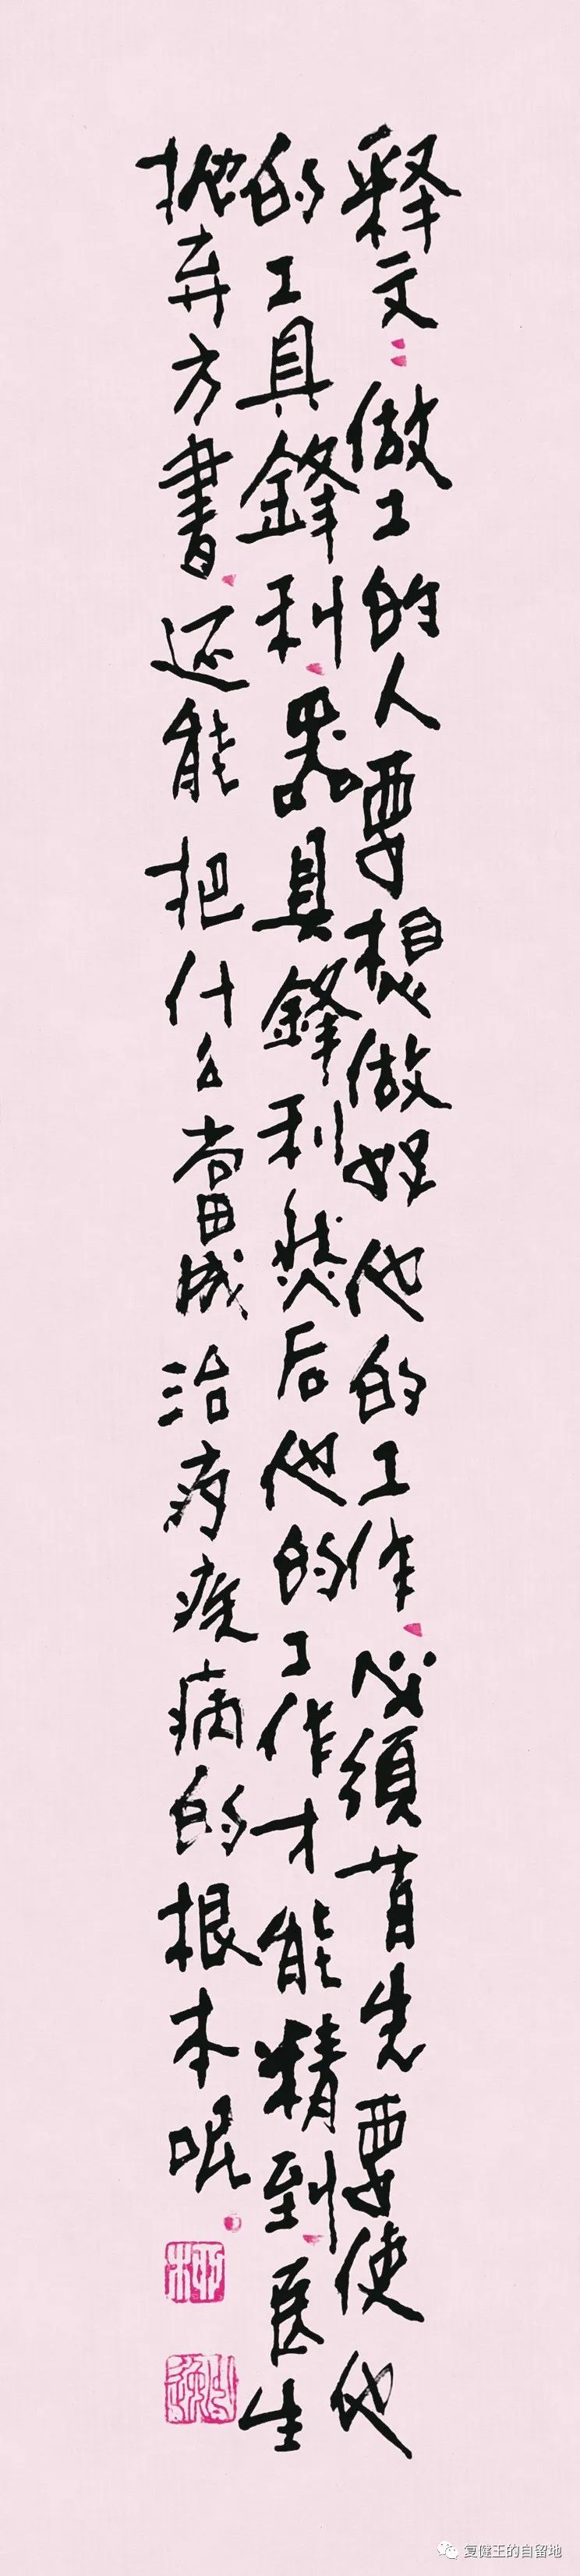 释文：做工的人要想做好他的工作，必须首先要使他
的工具鋒利，器具鋒利然后他的工作才能精到，医生
抛弃方書，还能把什么當成治疗疾病的根本呢。
复健王的自留地